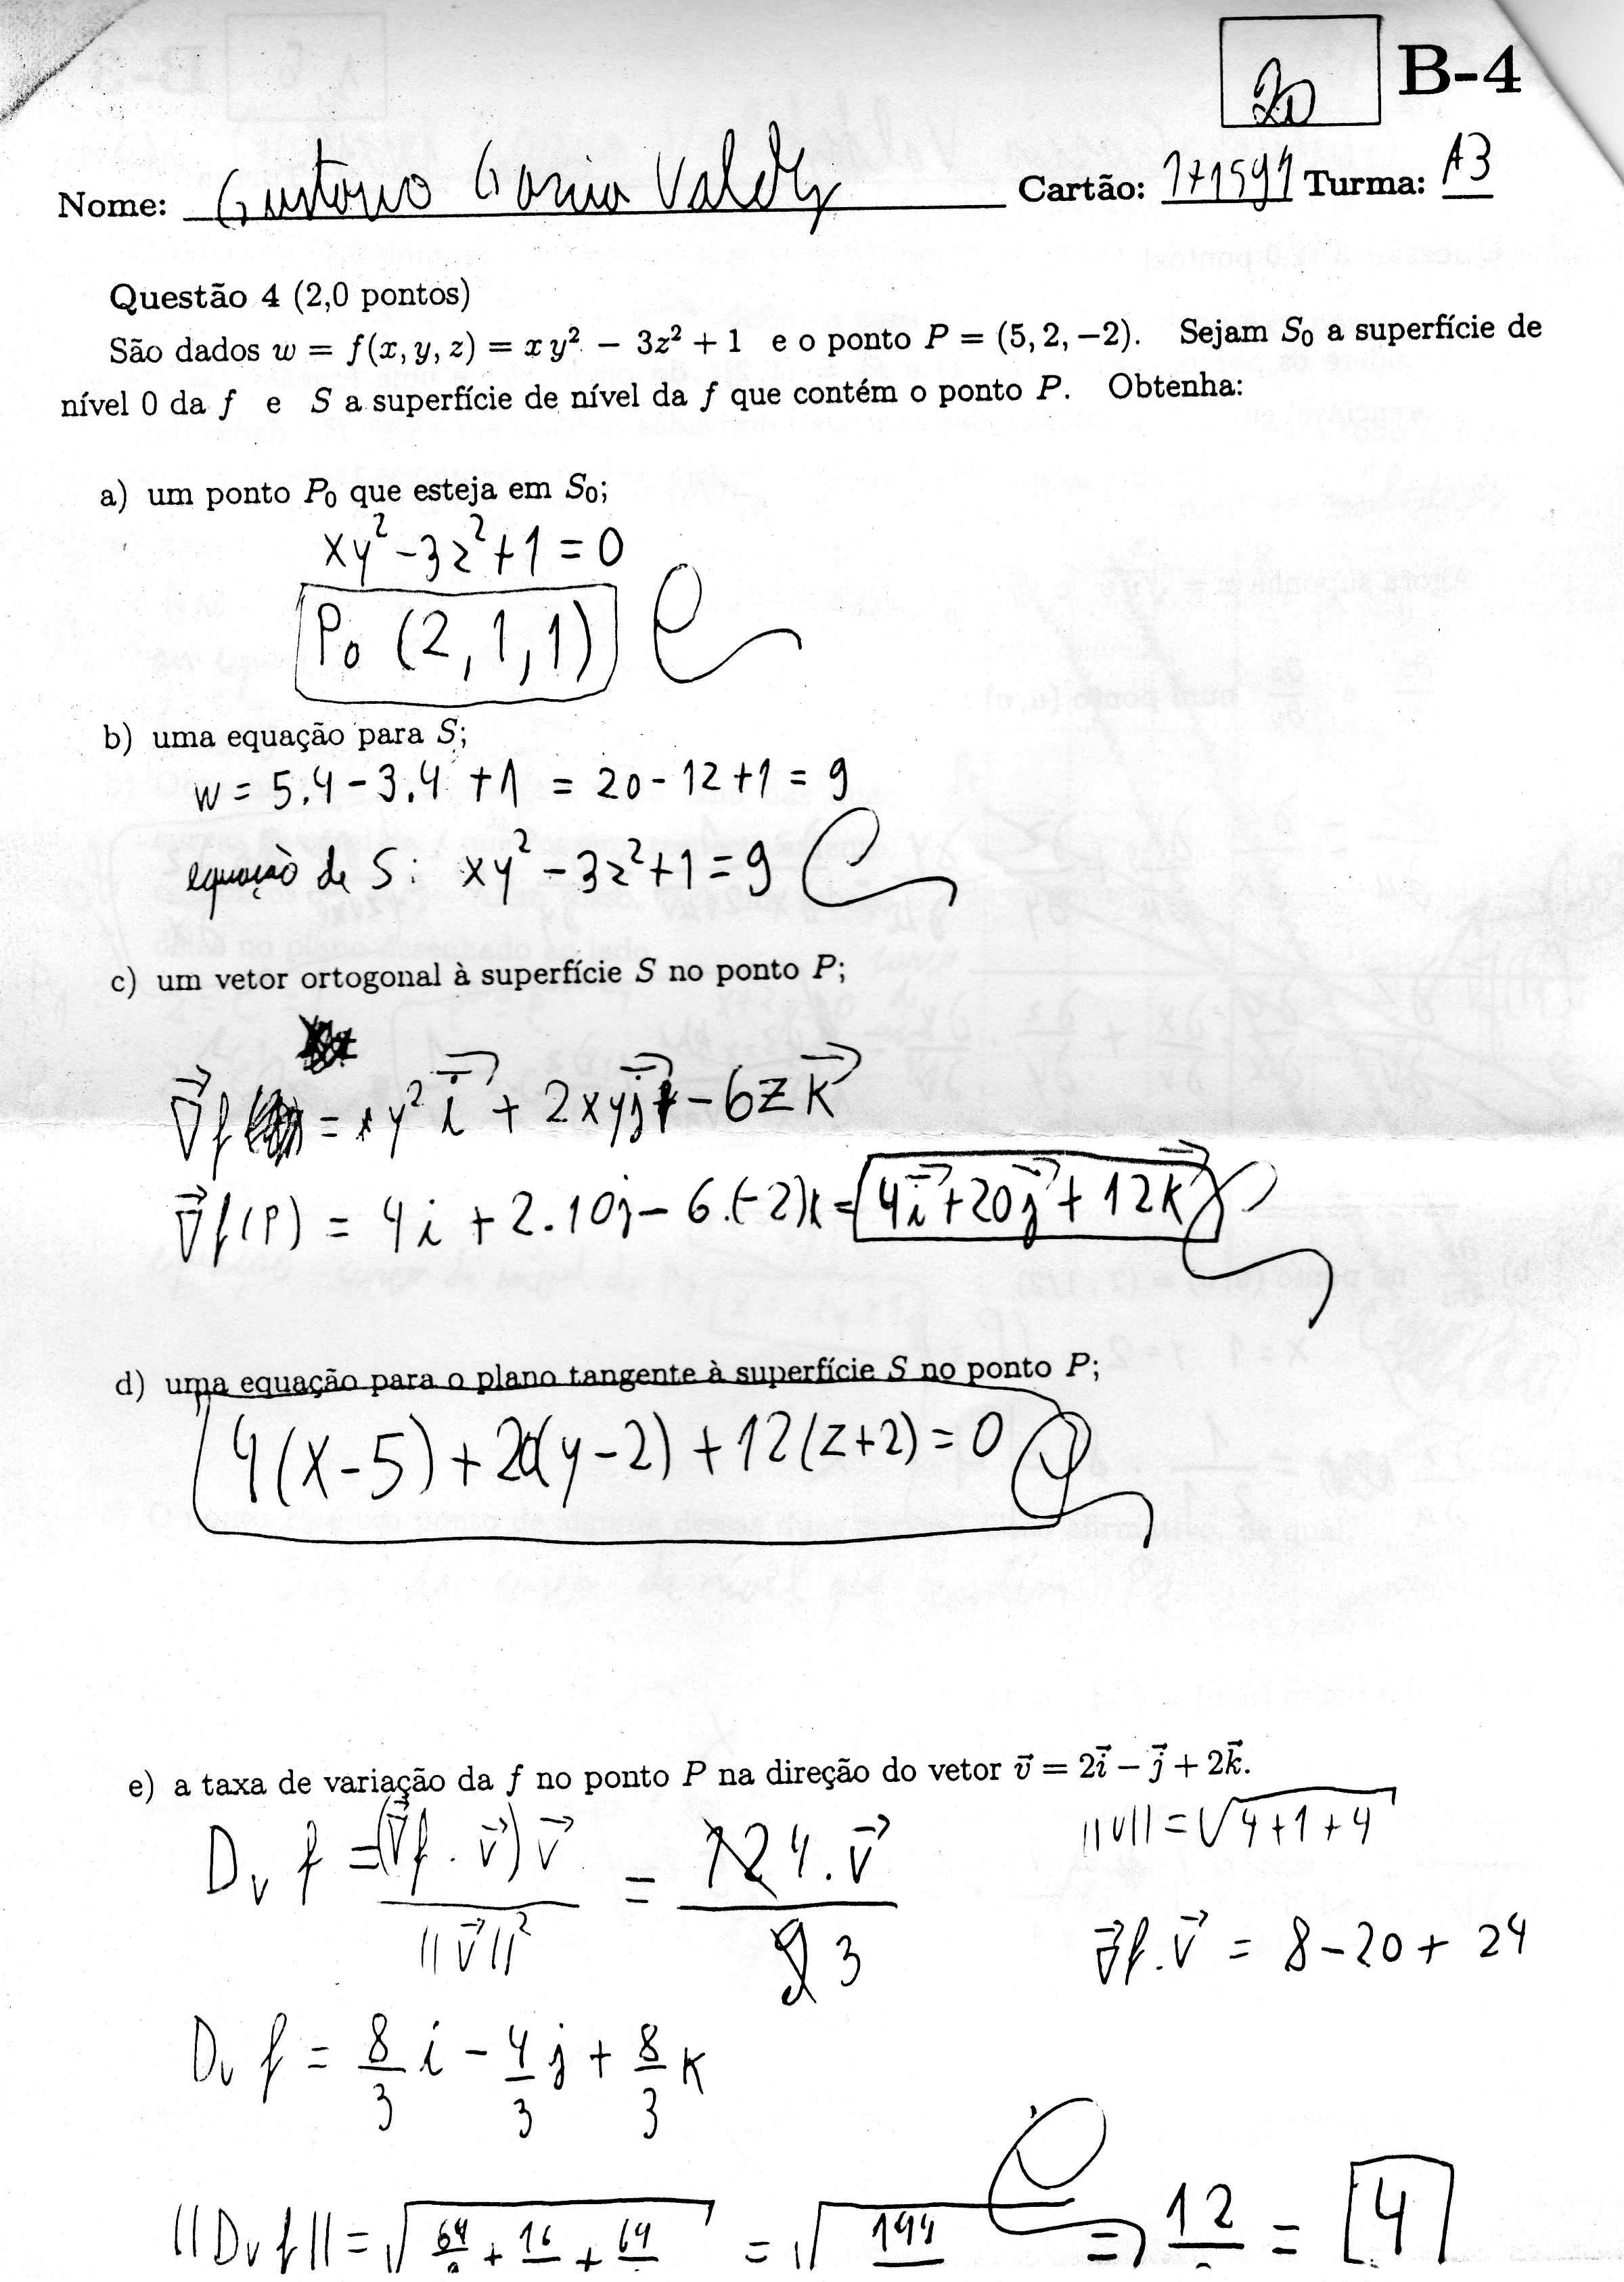 20 B-4
Nome: Gustavo Garcia Valdez Cartão: 171591 Turma: A3
Questão 4 (2,0 pontos)
São dados w = f(x, y, z) = x y² − 3z² + 1 e o ponto P = (5, 2, −2). Sejam S₀ a superfície de
nível 0 da f e S a superfície de nível da f que contém o ponto P. Obtenha:
a) um ponto P₀ que esteja em S₀;
xy² − 3z² + 1 = 0
P₀ (2, 1, 1)
b) uma equação para S;
w = 5.4 − 3.4 + 1 = 20 − 12 + 1 = 9
equação de S: xy² − 3z² + 1 = 9
c) um vetor ortogonal à superfície S no ponto P;
∇⃗f = y² i⃗ + 2xy j⃗ − 6z k⃗
∇⃗f(P) = 4i + 2.10j − 6.(−2)k = 4i⃗ + 20j⃗ + 12k⃗
d) uma equação para o plano tangente à superfície S no ponto P;
4(x − 5) + 20(y − 2) + 12(z + 2) = 0
e) a taxa de variação da f no ponto P na direção do vetor v⃗ = 2i⃗ − j⃗ + 2k⃗.
Dᵥ f = (∇⃗f . v⃗) v⃗ / ||v⃗||² = 4 . v⃗ / 3 ||v|| = √(4 + 1 + 4)
∇⃗f . v⃗ = 8 − 20 + 24
Dᵥ f = 8/3 i − 4/3 j + 8/3 k
||Dᵥ f|| = √(64 + 16 + 64) = √144 = 12 = 4